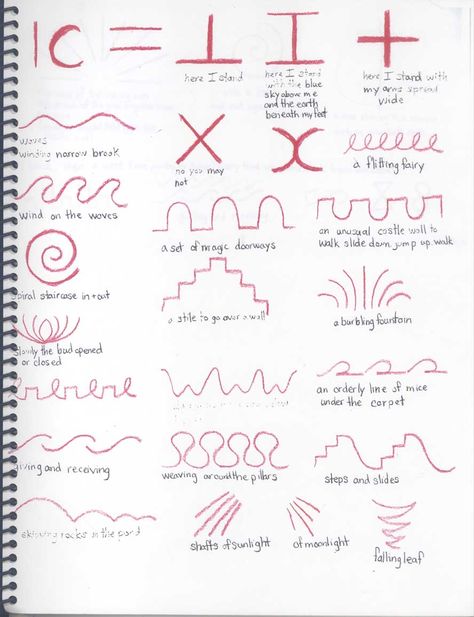 here I stand
here I stand
with the blue
sky above me
and the earth
beneath my feet
here I stand with
my arms spread
wide
waves
winding narrow brook
no you may
not
a flitting fairy
wind on the waves
a set of magic doorways
an unusual castle wall to
walk slide down jump up walk
spiral staircase in + out
a stile to go over a wall
a burbling fountain
slowly the bud opened
or closed
an orderly line of mice
under the carpet
giving and receiving
weaving around the pillars
steps and slides
skipping rocks in the pond
shafts of sunlight
of moonlight
falling leaf